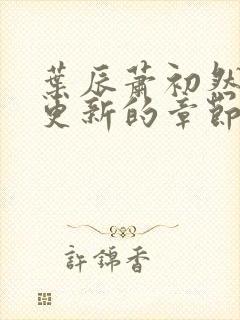 葉辰蕭初然
更新的章節
許錦香